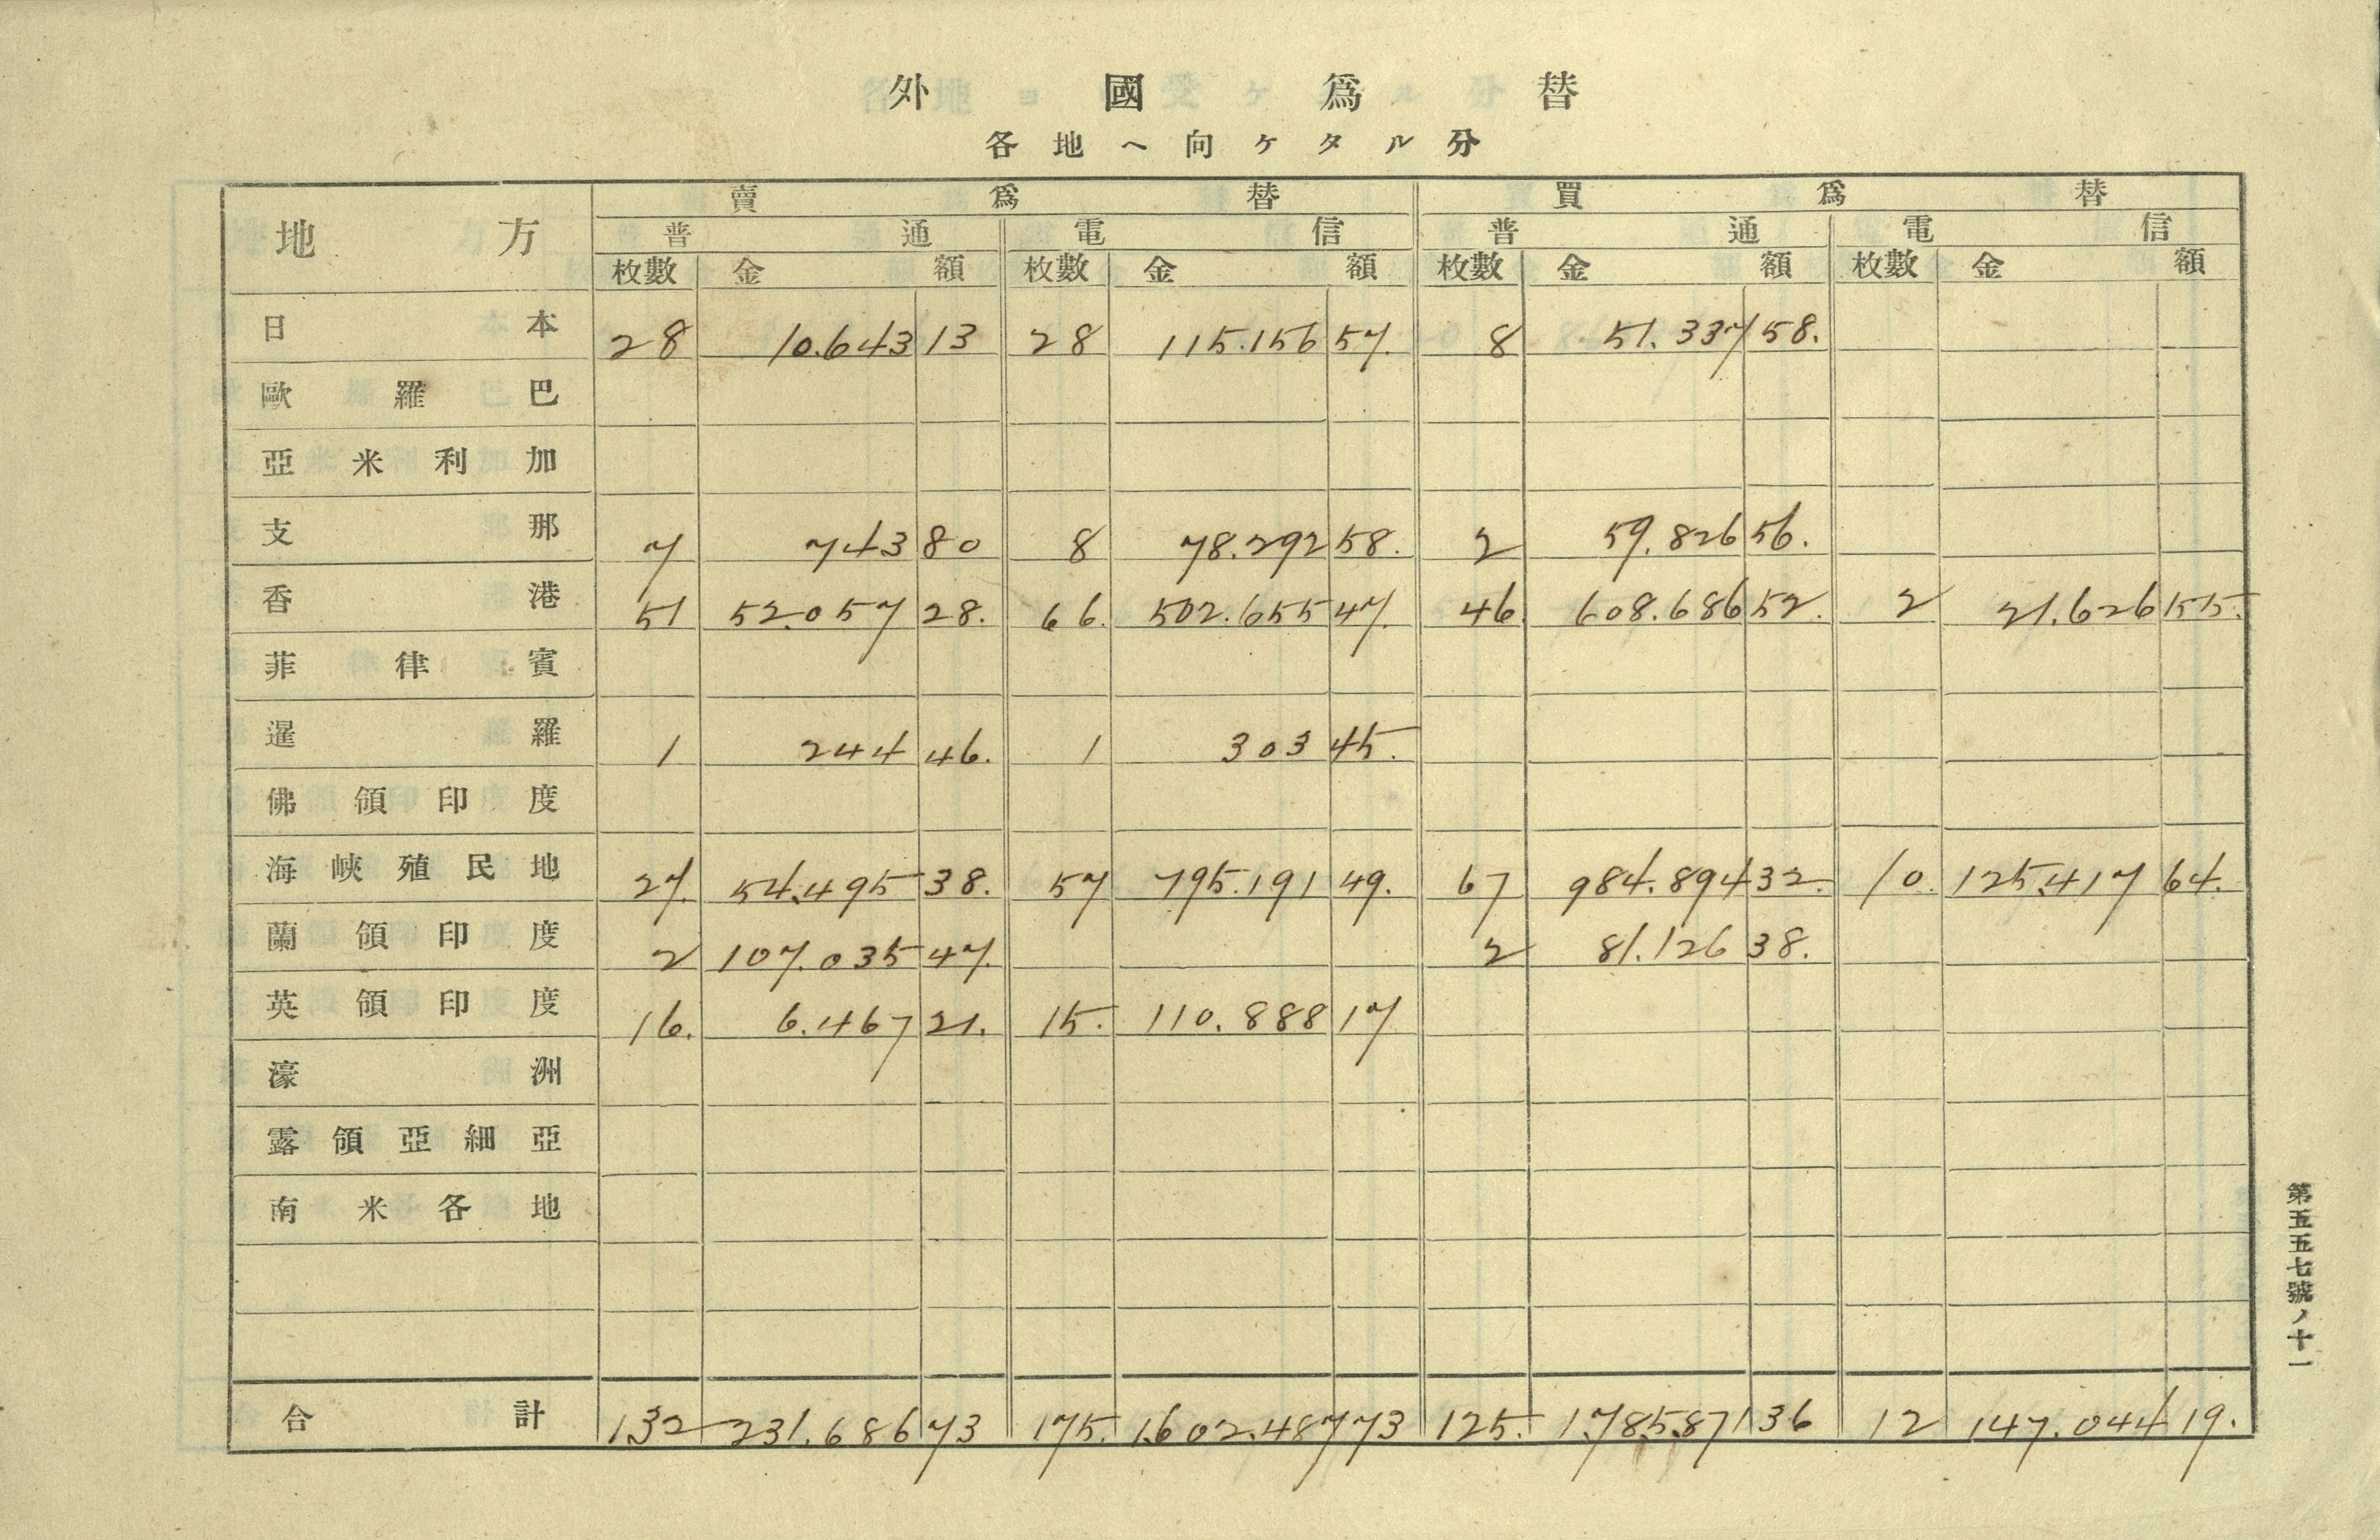 外國爲替
各地へ向ケタル分
地方 賣爲替 買爲替
普通 電信 普通 電信
枚數 金額 枚數 金額 枚數 金額 枚數 金額
日本 28 10.643 13 28 115.156 57. 8 51.337 58.
歐羅巴
亞米利加
支那 7 743 80 8 78.292 58. 2 59.826 56.
香港 51 52.057 28. 66. 502.655 47. 46. 608.686 52. 2 21.626 55.
菲律賓
暹羅 1 244 46. 1 303 45.
佛領印度
海峽殖民地 27. 54.495 38. 57 795.191 49. 67 984.894 32. 10. 125.417 64.
蘭領印度 2 107.035 47. 2 81.126 38.
英領印度 16. 6.467 21. 15. 110.888 17
濠洲
露領亞細亞
南米各地
合計 132 231.686 73 175. 1.602.487 73 125. 1.785.871 36 12 147.044 19.
第五五七號ノ十一